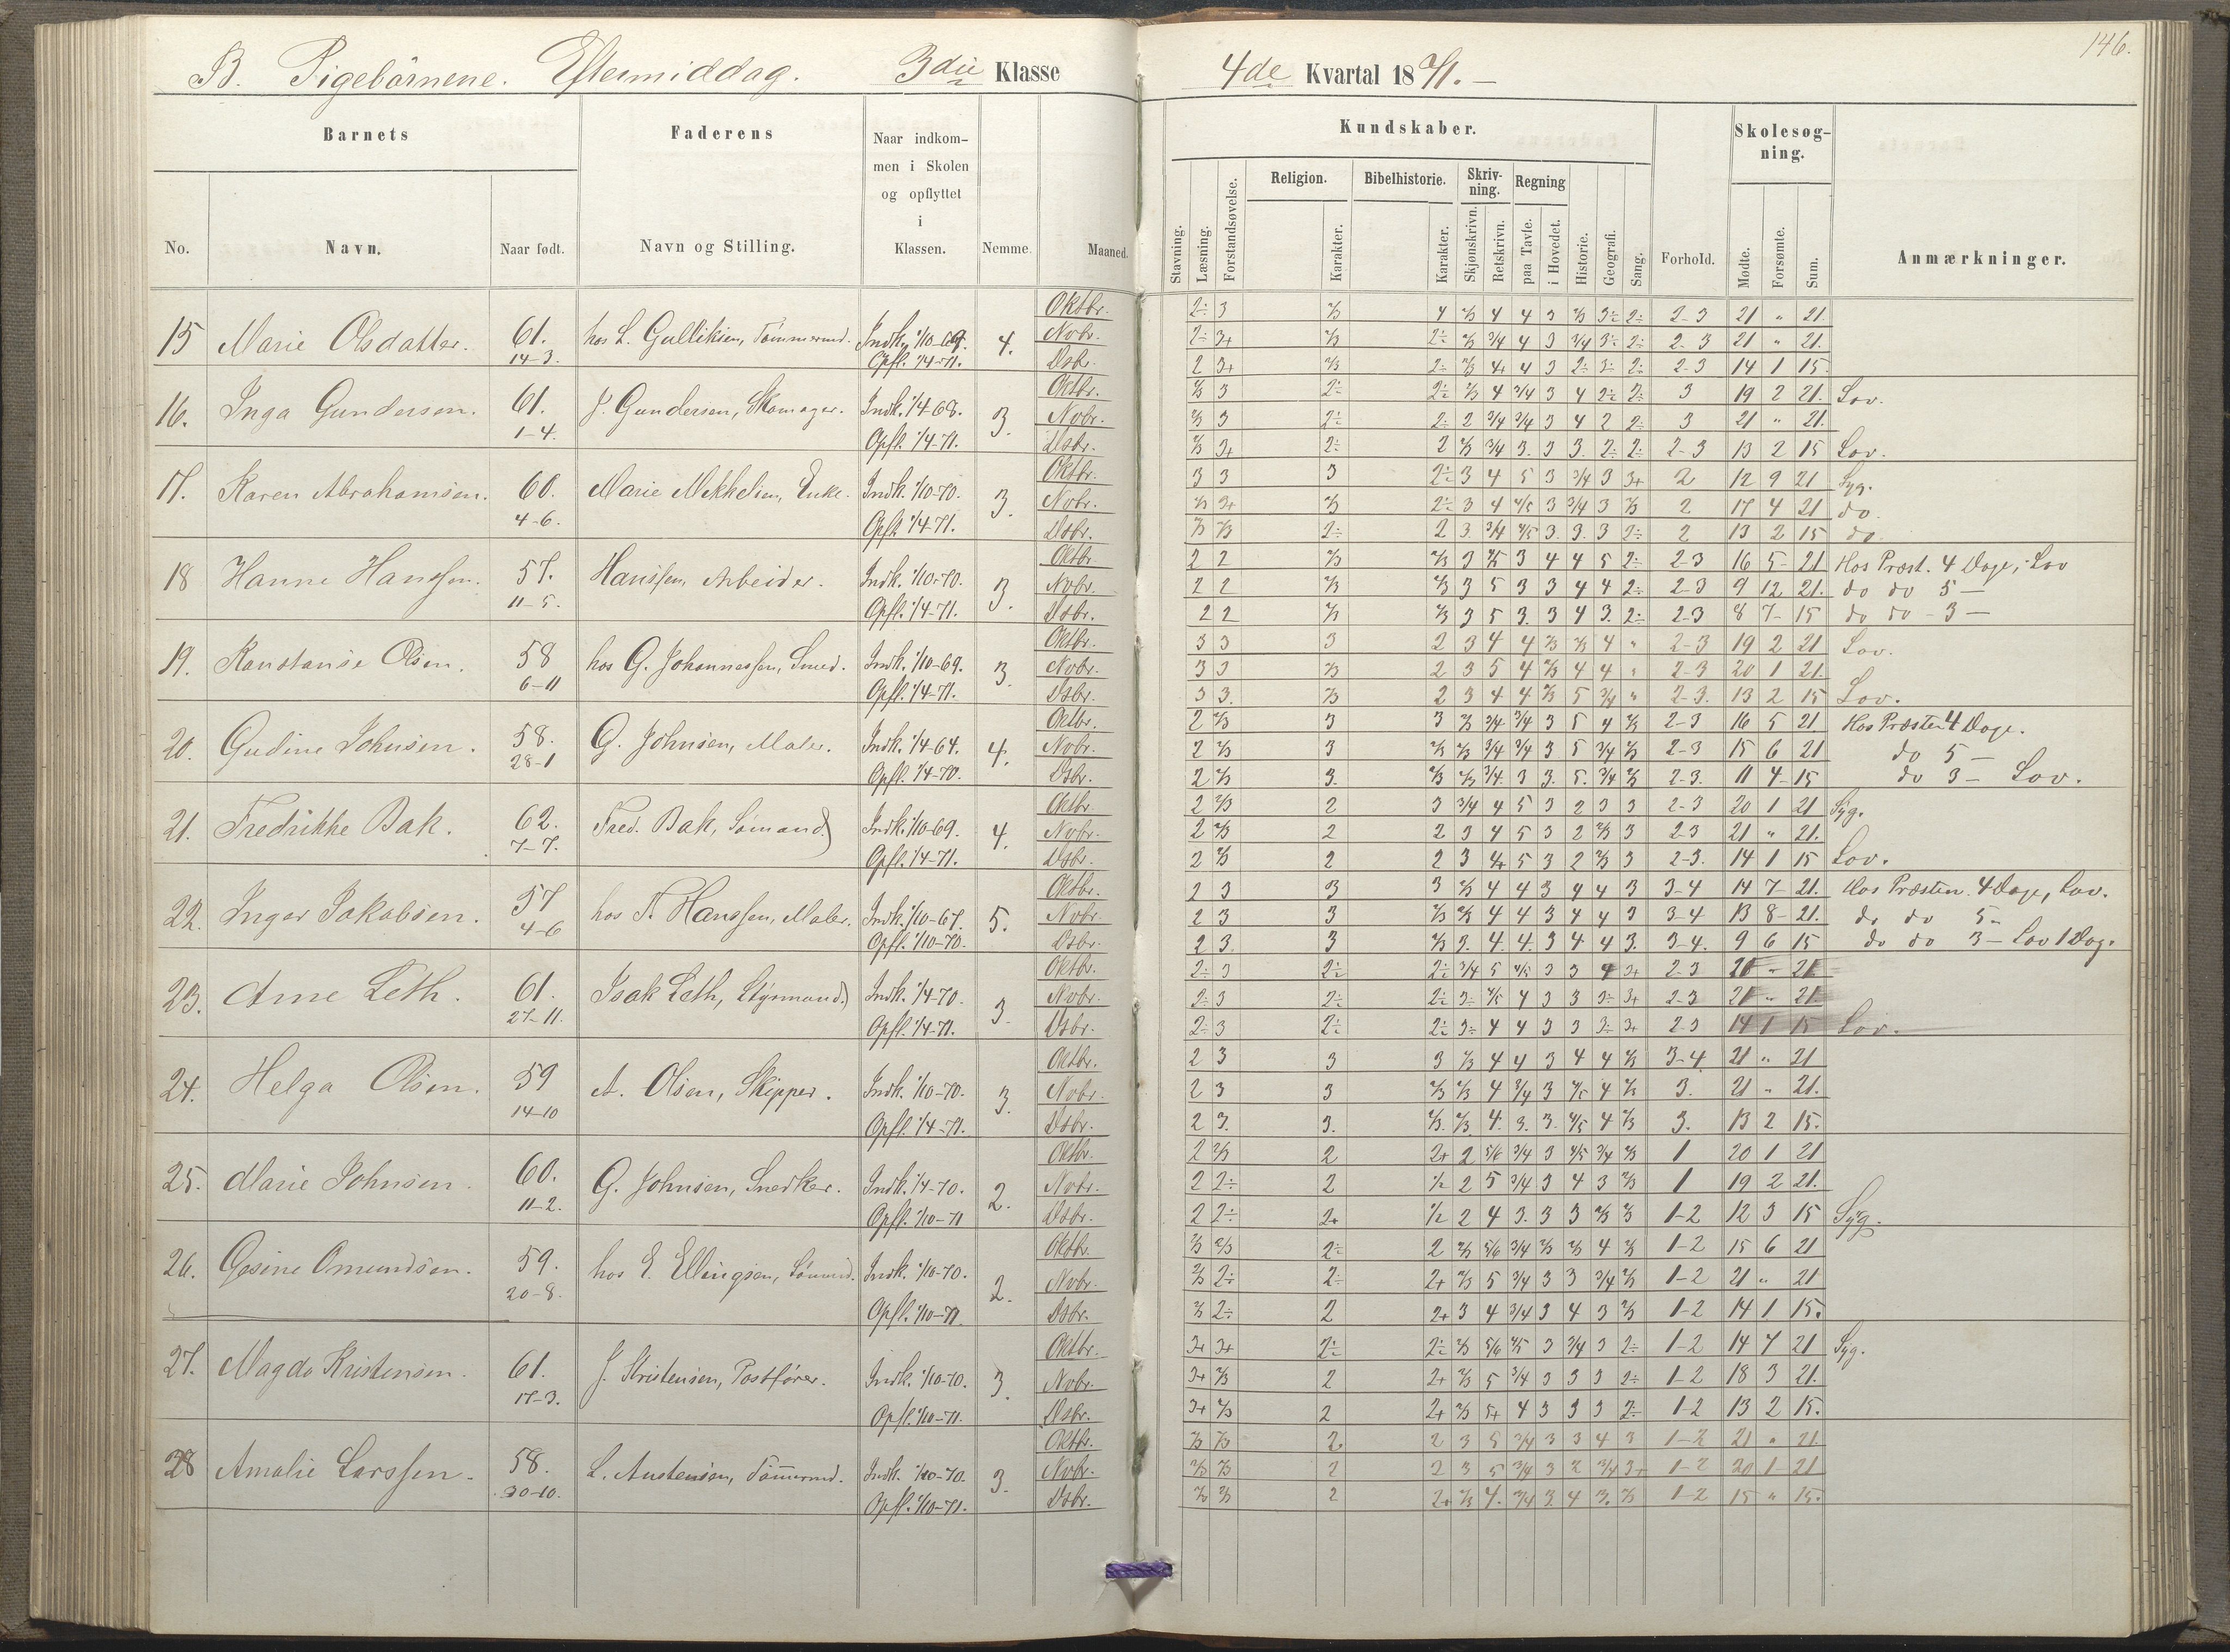 B. Pigebörnene. Eftermiddag. 3die Klasse
4de Kvartal 1871. —
146.
Barnets
Faderens
Naar indkom-
men i Skolen
og opflyttet
i
Klassen.
No.
Navn.
Naar født.
Navn og Stilling.
Nemme.
Maaned.
Kundskaber.
Skolesøg-
ning.
Religion.
Bibelhistorie.
Skriv-
ning.
Regning
Stavning.
Læsning.
Forstandsøvelse.
Karakter.
Karakter.
Skjønskrivn.
Retskrivn.
paa Tavle.
i Hovedet.
Historie.
Geografi.
Sang.
Forhold.
Mødte.
Forsømte.
Sum.
Anmærkninger.
15 Marie Olsdatter. 61. 14-3. hos L. Gulliksen, Tømmermd. Indk. 1/10-69. Opfl. 1/4-71. 4.
Oktbr. 2÷ 3 2/3 4 2/3 4 4 3 2/3 3÷ 2÷ 2-3 21 " 21.
Novbr. 2÷ 3+ 2/3 2÷ 2/3 3/4 4 3 3/4 3÷ 2÷ 2-3 21 " 21.
Dsbr. 2 3+ 2/3 2÷ 2/3 4+ 4 3 2÷ 3÷ 2÷ 2-3 14 1 15.
16. Inga Gundersen. 61. 1-4. J. Gundersen, Skomager. Indk. 1/4-68. Opfl. 1/4-71. 3.
Oktbr. 2/3 3 2÷ 2÷ 2/3 4 3/4 3 4 2÷ 2÷ 3 19 2 21. Lov.
Novbr. 2/3 3 2÷ 2÷ 2 3/4 3/4 3 4 2 2÷ 3 21 " 21.
Dsbr. 2/3 3+ 2÷ 2 2/3 3/4 3. 3 3. 2÷ 2÷ 2-3 13 2 15 Lov.
17. Karen Abrahamsen. 60. 4-6. Marie Mikkelsen, Enke. Indk. 1/10-70. Opfl. 1/4-71. 3.
Oktbr. 3 3 3 2÷ 3 4 5 3 3/4 3 3+ 2 12 9 21 Syg.
Novbr. 2/3 3+ 2/3 2÷ 3 4 4/5 3 3/4 3 2/3 2 17 4 21 do.
Dsbr. 2/3 2/3 2÷ 2 3. 3/4 4/5 3. 3. 3 2÷ 2 13 2 15 do.
18 Hanne Hanssen. 57. 11-5. Hanssen, Arbeider. Indk. 1/10-70. Opfl. 1/4-71. 3.
Oktbr. 2 2 2/3 2/3 3 4/5 3 4 4 5 2÷ 2-3 16 5- 21 Hos Præst. 4 Dage, Lov
Novbr. 2 2 2/3 2/3 3 5 3 3 4 4 2÷ 2-3 9 12 21. do do 5 —
Dsbr. 2 2 2/3 2/3 3 5 3. 3 4 3. 2÷ 2-3 8 7- 15 do do - 3 —
19. Konstanse Olsen. 58 6-11 hos G. Johannessen, Smed. Indk. 1/10-69. Opfl. 1/4-71. 3.
Oktbr. 3 3 3 2 3 4 4 2/3 2/3 4 " 2-3 19 2 21 Lov.
Novbr. 3 3 2/3 2 3 5 4 2/3 4 4 " 2-3 20 1 21.
Dsbr. 3 3. 2/3 2 3 4 4 2/3 5 3/4 " 2-3. 13 2 15 Lov.
20. Gudine Johnsen. 58. 28-1 G. Johnsen, Maler. Indk. 1/4-64. Opfl. 1/4-70. 4.
Oktbr. 2 2/3 3 3 2/3 3/4 3/4 3 5 4 2/3 2-3 16 5 21. Hos Præsten 4 Dage.
Novbr. 2 2/3 3 2/3 2/3 3/4 3/4 3 5 3/4 2/3 2-3 15 6 21 do 5 —
Dsbr. 2 2/3 3. 2/3 2/3 3/4. 3 3. 5. 3/4 2/3 2-3. 11 4- 15 do 3 — Lov.
21. Fredrikke Bak. 62. 7-7. Fred. Bak, Sömand) Indk. 1/10-69. Opfl. 1/4-71. 4.
Oktbr. 2 2/3 2 3 3/4 4 5 3 2 3 3 2-3 20 1 21 Syg.
Novbr. 2 2/3 2 2 3 4 5 3 2 2/3 3 2-3 21 " 21.
Dsbr. 2 2/3 2 2 3 4+ 5 3 2 2/3 3 2-3. 14 1 15 Lov.
22. Inger Jakobsen. 57 4-6 hos T. Hanssen, Maler. Indk. 1/10-67. Opfl. 1/10-70. 5.
Oktbr. 2 3 3 3 2/3 4 4 3 4 4 3 3-4 14 7- 21. Hos Præsten 4 Dage, Lov.
Novbr. 2 3 3 2/3 2/3 4 4 3 4 4 3 3-4 13 8- 21. do do 5 -
Dsbr. 2 3. 3 2/3 3. 4. 4. 3 4 4 3. 3-4. 9 6 15 do do 3 — Lov 1 Dag.
23. Arne Leth. 61. 27-11. Isak Leth, Styrmand) Indk. 1/4-70. Opfl. 1/4-71. 3.
Oktbr. 2÷ 3 2÷ 2÷ 3/4 5 4/5 3 3 4 3+ 2-3 21 " 21
Novbr. 2÷ 3 2÷ 2÷ 3÷ 4/5 4 3 3 3÷ 3+ 2-3 21 " 21
Dsbr. 2÷ 3 2÷ 2÷ 3÷ 4 4 3 3 3÷ 3+ 2-3 14 1 15 Lov.
24. Helga Olsen. 59 14-10 A. Olsen, Skipper. Indk. 1/10-70. Opfl. 1/4-71. 3.
Oktbr. 2 3 3 3 2/3 4 4 3 4 4 2/3 3-4. 21 " 21
Novbr. 2 3 3 2/3 2/3 4 3/4 3 4/5 4 2/3 3. 21 " 21.
Dsbr. 2 3. 3. 2/3. 2/3. 4. 3. 3. 4/5 4 2/3 3. 13 2 15.
25. Marie Johnsen. 60. 11-2. G. Johnsen, Snedker. Indk. 1/4-70. Opfl. 1/10-71 2.
Oktbr. 2 2/3 2 2+ 2 5/6 3/4 3 4/5 3/4 2/3 1 20 1 21
Novbr. 2 2÷ 2 1/2 2 5 3/4 3 4 3 2/3 1 19 2 21.
Dsbr. 2 2÷ 2+ 1/2 2 4 3. 3 3 2/3 2/3 1-2 12 3 15 Syg.
26. Gesine Omundsen. 59. 20-8. hos E. Ellingsen, Sömand. Indk. 1/10-70. Opfl. 1/10-71. 2.
Oktbr. 2/3 2/3 2÷ 2 2/3 5/6 3/4 2/3 2/3 4 2/3 1-2 15 6 21
Novbr. 2/3 2÷ 2÷ 2+ 2/3 5 3/4 3 3 3/4 2/3 1-2 21 " 21
Dsbr. 2/3 2÷ 2 2+ 3 4 3/4 3 4 3 2/3 1-2 14 1 15.
27. Magda Kristensen. 61. 17-3. J. Kristensen, Postfører. Indk. 1/10-70. Opfl. 1/10-71. 3.
Oktbr. 3+ 3+ 2÷ 2÷ 2/3 5/6 4/5 3 3/4 3 2÷ 1-2 14 7 21 Syg.
Novbr. 3+ 2/3 2 2+ 2/3 5 3/4 3 3 3 2÷ 1-2 18 3 21.
Dsbr. 3+ 2/3 2 2+ 2/3 5+ 4 3 3 3 2÷ 1-2 13 2 15.
28 Amalie Larssen. 58. 30-10. L. Austensen, Tömmermd. Indk. 1/10-70. Opfl. 1/10-71. 3.
Oktbr. 2/3 2/3 2. 2 3 5 3/4 3 3 4 3 1-2 21 " 21.
Novbr. 2/3 2/3 2 2 3 5 3/4 3 2 3/4 3+ 1-2 20 1- 21
Dsbr. 2/3 2/3 2 2+ 2/3 4. 3/4 3. 4 3. 2/3 1-2 15 " 15.